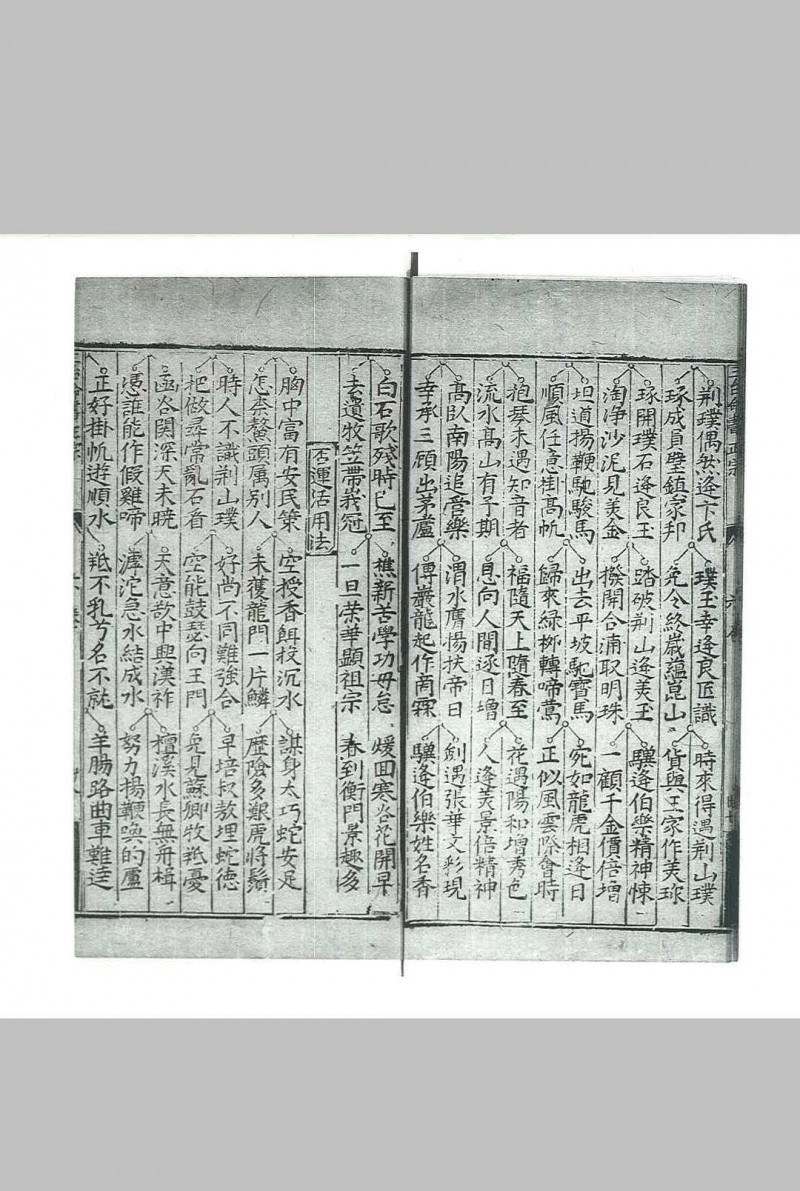 荆璞偶然逢卞氏
璞玉幸逢良匠識
時來得遇荆山璞
琢成員璧鎮家邦
免令終歲蘊崑山
貨與王家作美珍
琢開璞石逢良玉
踏破荆山逢美玉
驥逢伯樂精神悚
淘淨沙泥見美金
撥開合浦取明珠
一顧千金價倍增
坦道揚鞭馳駿馬
出去平坡馳寶馬
宛如龍虎相逢日
順風任意掛高帆
歸來緑柳轉啼鶯
正似風雲際會時
抱琴未遇知音者
福隨天上隨春至
花遇陽和增秀色
流水高山有子期
息向人間逐日增
人逢美景倍精神
高臥南陽追管樂
渭水鷹揚扶帝日
劍遇張華文彩現
幸承三顧出茅廬
傅巖龍起作商霖
驥逢伯樂姓名香
白石歌殘時已至
樵薪苦學功毋怠
煖回寒谷花開早
去遺牧笠帶我冠
一旦荣華顯祖宗
春到衡門景趣多
否運活用法
胸中富有安民策
空投香餌投沉水
謀身太巧蛇安足
怎柰鰲頭属别人
未獲龍門一片鱗
歴險多艱虎將鬚
時人不識荆山璞
好尚不同難強合
早培叔敖埋蛇德
把做尋常亂石看
空能鼓瑟向王門
免見蘇卿牧羝憂
函谷関深天未曉
天意欲中興漢祚
檀溪水長無舟楫
憑誰能作假雞啼
滹沱急水結成水
努力揚鞭喚的盧
正好掛帆遊順水
羝不乳兮名不就
羊腸路曲車難逹